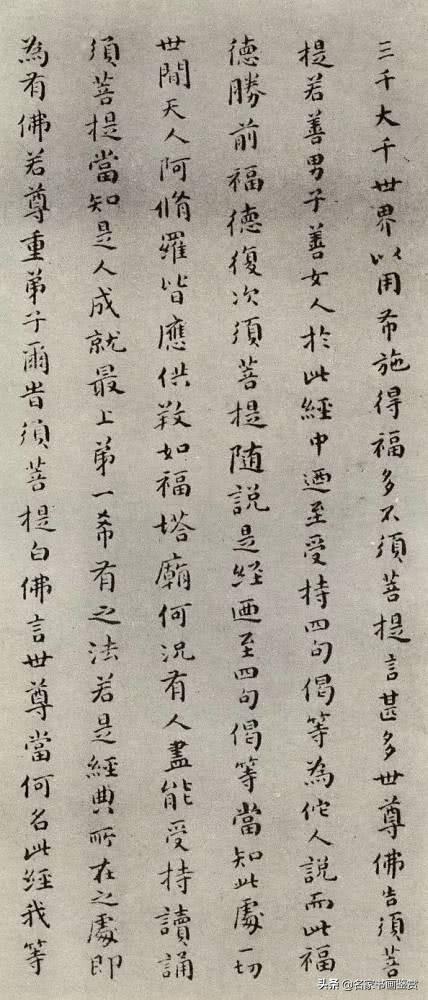 三千大千世界以用布施得福多不須菩提言甚多世尊佛告須菩
提若善男子善女人於此經中迺至受持四句偈等為佗人說而此福
德勝前福德復次須菩提随說是經迺至四句偈等當知此處一切
世間天人阿脩羅皆應供養如福塔廟何況有人盡能受持讀誦
須菩提當知是人成就最上第一希有之法若是經典所在之處即
為有佛若尊重弟子爾時須菩提白佛言世尊當何名此經我等
头条 @名家书画鉴赏